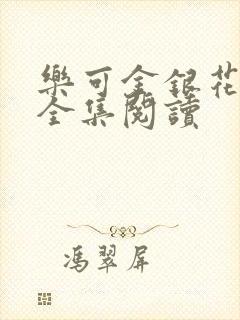 樂可金銀花
全集閱讀
馮翠屏